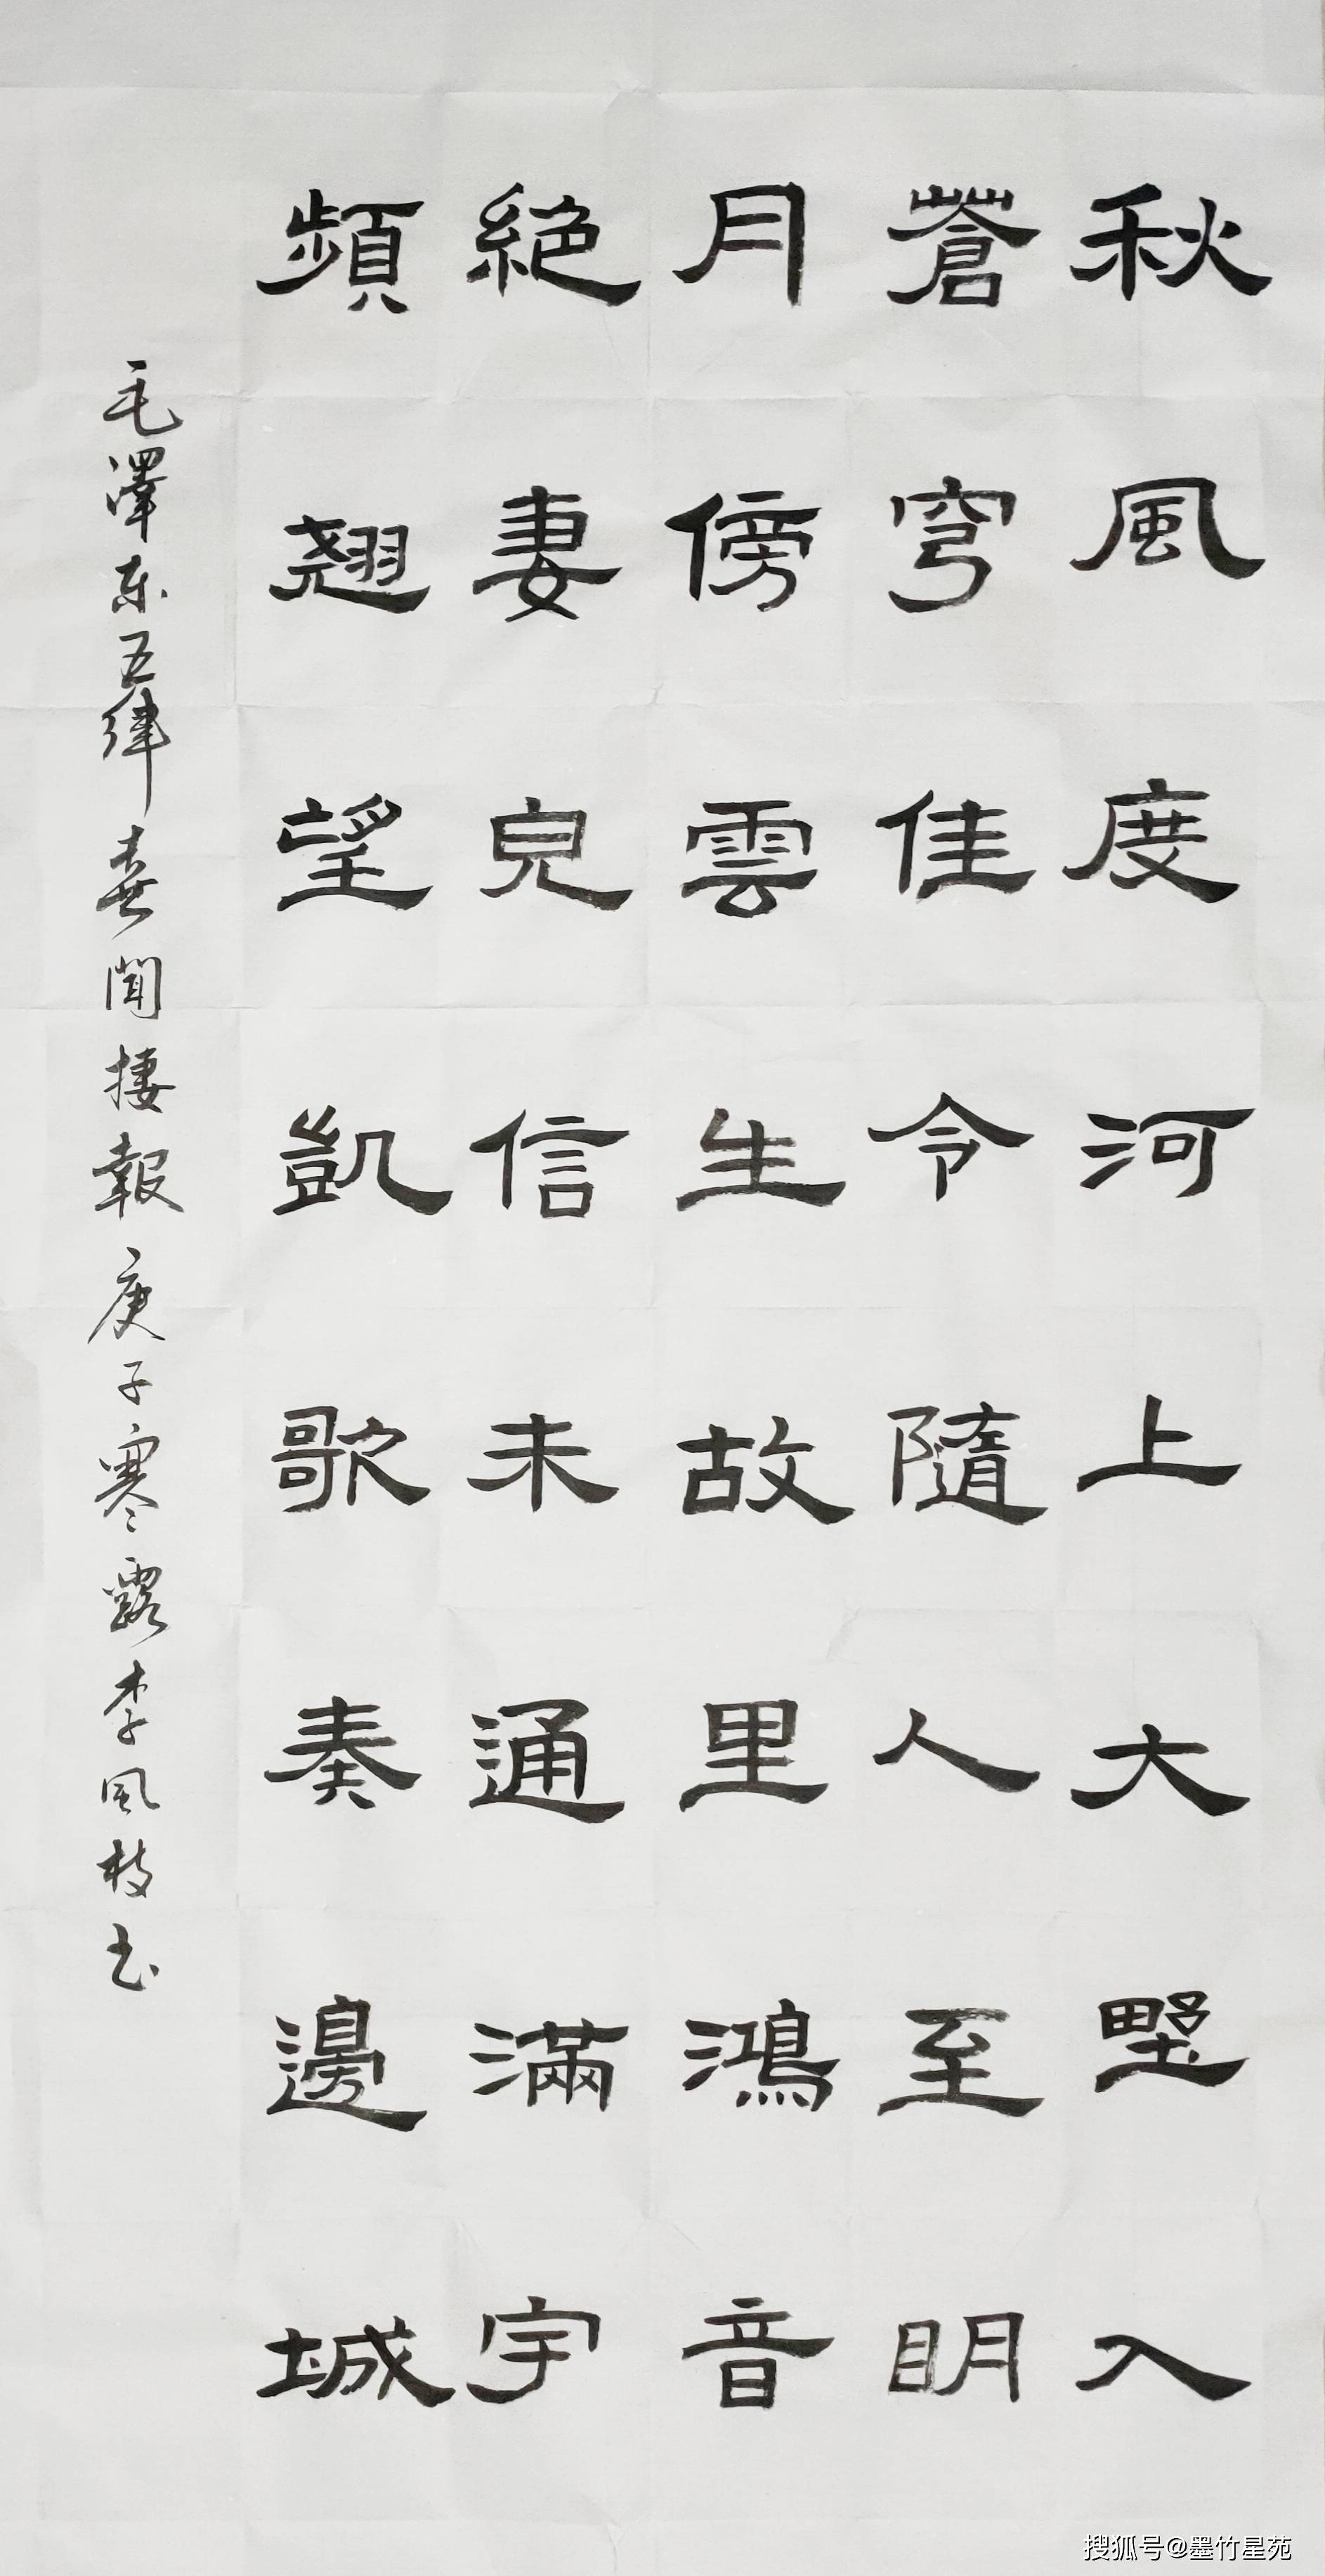 秋風度河上大墅入
蒼穹佳令隨人至眀
月傍雲生故里鴻音
絕妻兒信未通滿宇
頻翹望凱歌奏邊城
毛澤东五律喜聞捷報庚子寒露李風枝书
搜狐号@墨竹星苑